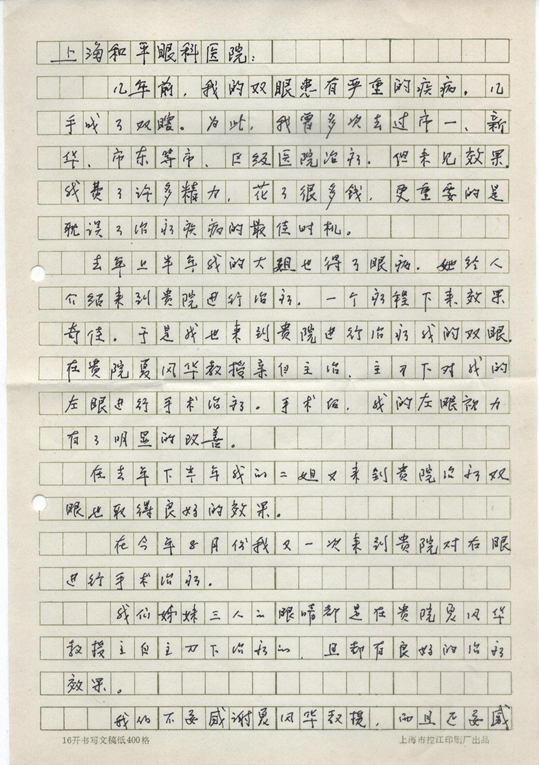 上海和平眼科医院：
几年前，我的双眼患有严重的疾病。几
乎成了双瞎。为此，我曾多次去过市一、新
华、市东等市、区级医院治疗。但未见效果。
我费了许多精力，花了很多钱，更重要的是
耽误了治疗疾病的最佳时机。
去年上半年我的大姐也得了眼病。她经人
介绍来到贵院进行治疗。一个疗程下来效果
奇佳。于是我也来到贵院进行治疗我的双眼。
在贵院夏风华教授亲自主治、主刀下对我的
左眼进行手术治疗。手术后，我的左眼视力
有了明显的改善。
在去年下半年我的二姐又来到贵院治疗双
眼也取得良好的效果。
在今年8月份我又一次来到贵院对右眼
进行手术治疗。
我们姊妹三人的眼睛都是在贵院夏风华
教授主自主刀下治疗的，且都有良好的治疗
效果。
我们不要感谢夏风华教授，而且还要感
16开书写文稿纸400格
上海市控江印刷厂出品